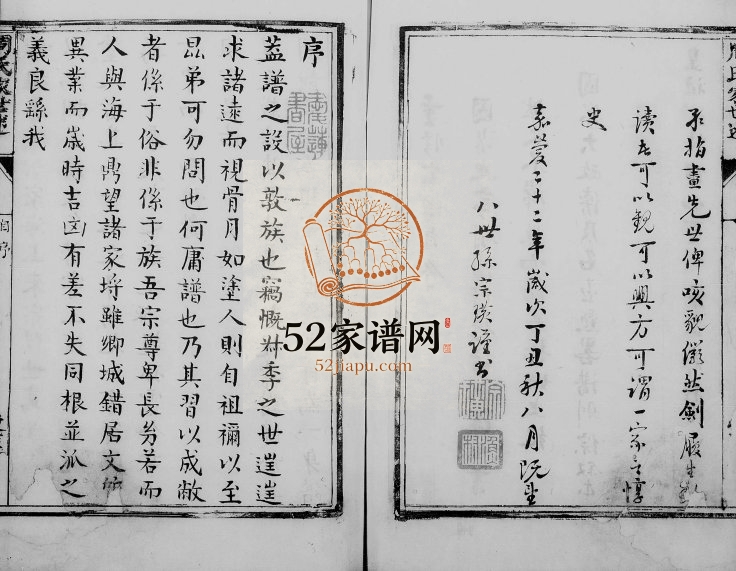 指畫先世俾咳貌儼然劍履生動
讀者可以觀可以興方可謂一家之惇
史
嘉慶二十二年歲次丁丑秋八月既望
八世孫宗璞謹書
序
蓋譜之設以敦族也竊慨叔季之世遑遑
求諸遠而視骨月如塗人則自祖禰以至
昆弟可勿問也何庸譜也乃其習以成敝
者係于俗非係于族吾宗尊卑長㓜若而
人與海上鼎望諸家埒雖鄉城錯居文
異業而歲時吉凶有差不失同根並派之
義良繇我
52家谱网
52jiapu.com